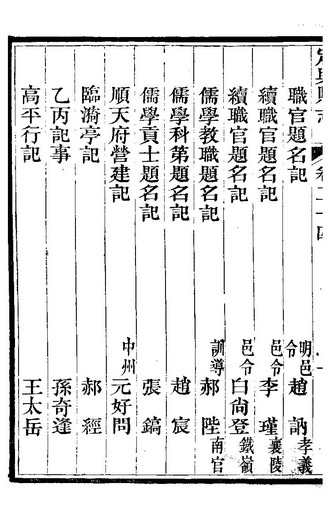 職官題名記 明邑令 趙訥 孝義
續職官題名記 邑令 李瑾 襄陵
續職官題名記 邑令 白尚登 鐵嶺
儒學教職題名記 訓導 郝陞 南官
儒學科第題名記 趙宸
儒學貢士題名記 張鎬
順天府營建記 中州 元好問
臨漪亭記 郝經
乙丙記事 孫奇逢
高平行記 王太岳